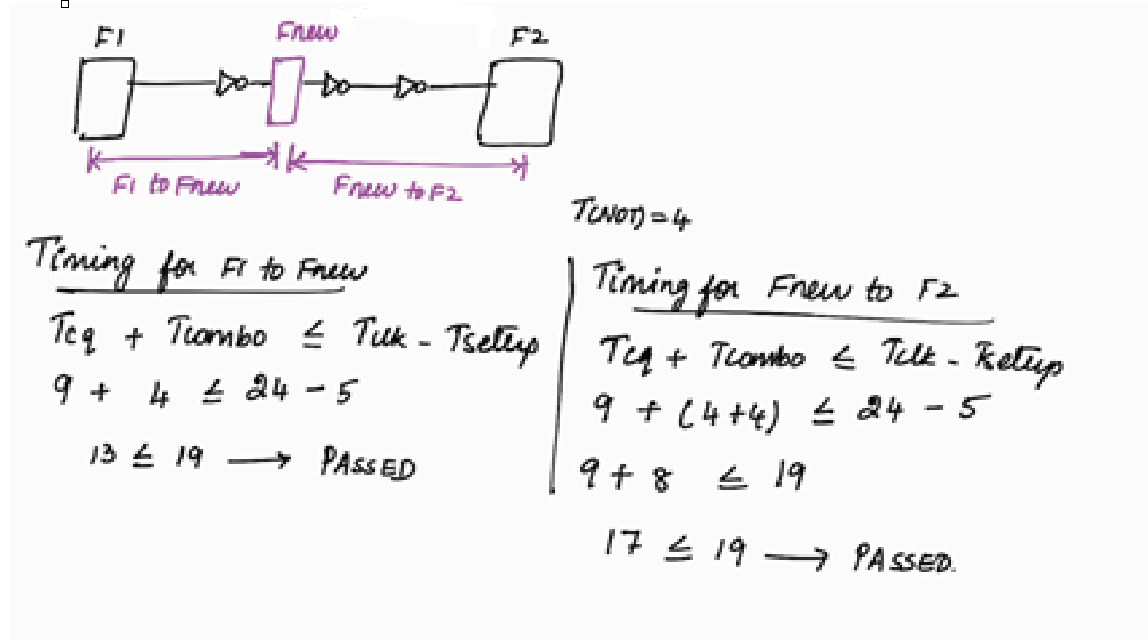 F1 Fnew F2
F1 to Fnew Fnew to F2
T(NOT) = 4
Timing for F1 to Fnew
Tcq + Tcombo ≤ Tclk - Tsetup
9 + 4 ≤ 24 - 5
13 ≤ 19 → PASSED
Timing for Fnew to F2
Tcq + Tcombo ≤ Tclk - Tsetup
9 + (4+4) ≤ 24 - 5
9 + 8 ≤ 19
17 ≤ 19 → PASSED.